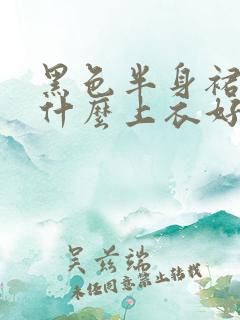 黑色半身裙
什麼上衣好
吴兹端
未经同意禁止转载